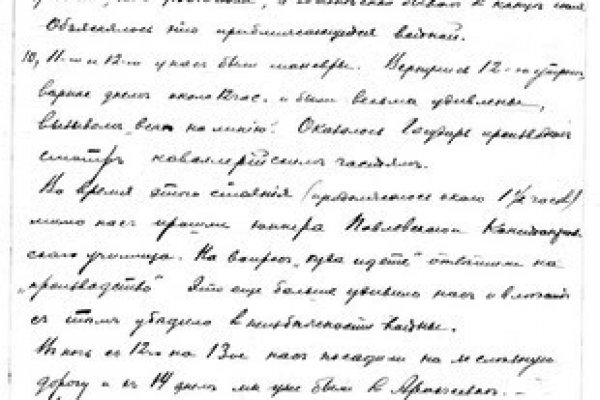 Объяснялось это приближающейся войной.
10, 11-го и 12-го у нас были маневры. Вернулись 12-го утром,
вернее днем около 12 час. и были весьма удивлены,
вызовом „всех на линию". Оказалось Государь производил
смотр кавалерийским частям.
Во время этого стояния (продолжалось около 1½ часов)
мимо нас прошли юнкера Павловского
училища. На вопрос „куда идете" отвечали на
„производство" Это еще больше удивило нас и
с тем убедило в неизбежности войны.
В ночь с 12-го на 13-ое нас посадили на железную
дорогу и с 14 днем мы уже были в